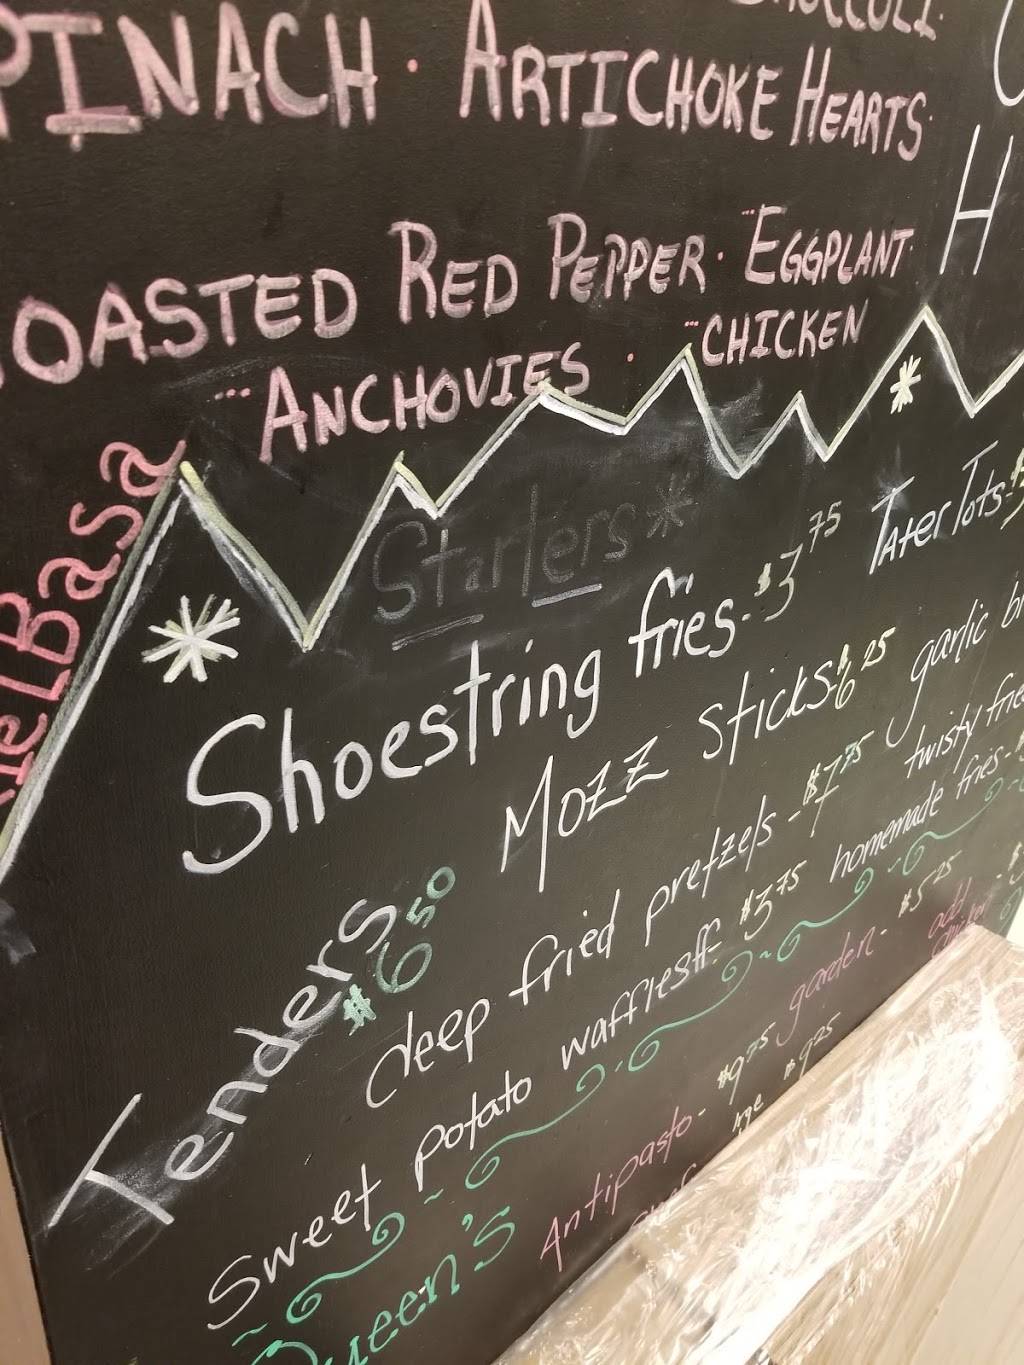 BROCCOLI.
PINACH · ARTICHOKE HEARTS.
OASTED RED PEPPER · EGGPLANT. H
ANCHOVIES · CHICKEN
elBasa
Starters
Shoestring fries - $3 75 TaterTots -
Mozz Sticks - $6 25 garlic
Tenders $6 50
deep fried pretzels - $7 75 twisty frie
Sweet potato waffries - $3 75 homemade fries -
Queen's
Antipasto - $9 75 garden - $5 25 add
lrge $9 25